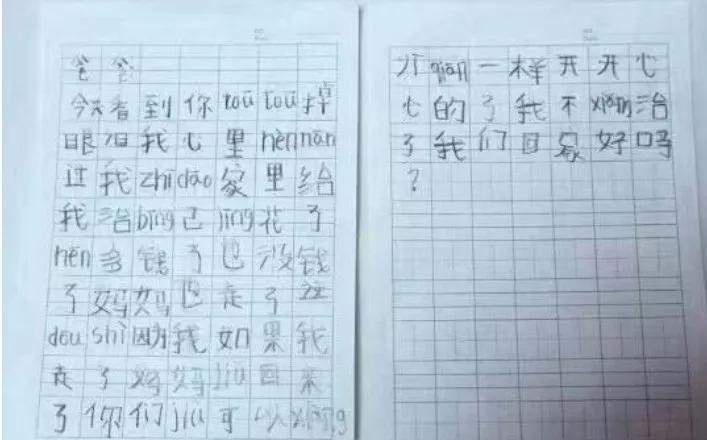 爸爸
今天看到你toū toū掉
眼泪我心里hěn nán
过我zhī dào家里给
我治bìng已jīng花了
hěn多钱了也没钱
了妈妈也走了这
dōu shì因为我如果我
走了妈妈jiù回来
了你们jiù可以xiàng
以qián一样开开心
心的了我不xiǎng治
了我们回家好吗
?